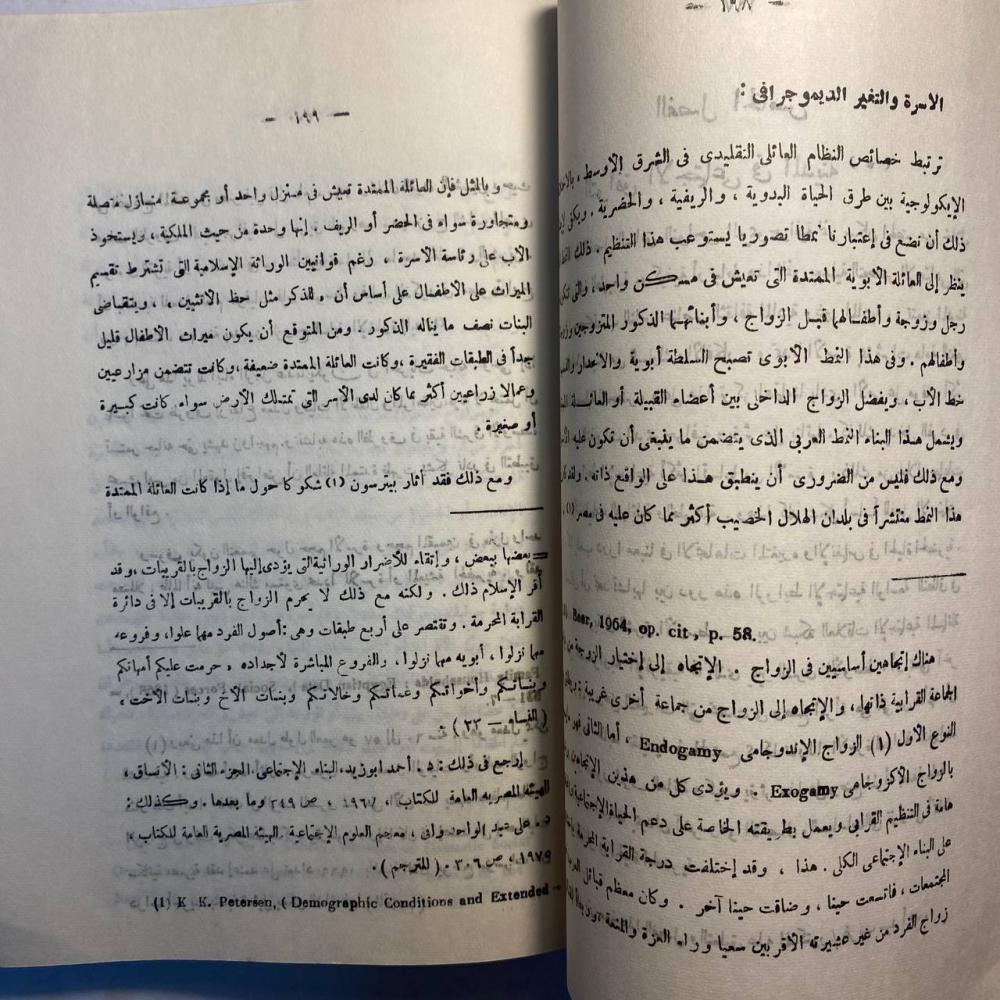 — ١٩٨ —
الأسرة والتغير الديموجرافى :
ترتبط خصائص النظام العائلى التقليدى فى الشرق الأوسط ،
الإيكولوجية بين طرق الحياة البدوية ، والريفية ، والحضرية ، ويكفى
ذلك أن نضع فى إعتبارنا نمطا تصوريا يستوعب هذا التنظيم . ذلك
ينظر إلى العائلة الأبوية الممتدة التى تعيش فى مسكن واحد ، والتى
رجل وزوجة وأطفالهما قبل الزواج ، وأبنائهما الذكور المتزوجين
وأطفالهم . وفى هذا النمط الأبوى تصبح السلطة أبوية والانحدار
خط الأب ، ويفضل الزواج الداخلى بين أعضاء القبيلة أو العائلة
ويشمل هذا البناء النمط العربى الذى يتضمن ما ينبغى أن تكون عليه
ومع ذلك فليس من الضرورى أن ينطبق هذا على الواقع ذاته . ولقد
هذا النمط منتشراً فى بلدان الهلال الخصيب أكثر مما كان عليه فى مصر (١)
Baer, 1964, op. cit, p. 58.
هناك إتجاهين أساسيين فى الزواج . الإتجاه إلى إختيار الزوجة
الجماعة القرابية ذاتها ، والإتجاه إلى الزواج من جماعة أخرى غريبة
النوع الأول (١) الزواج الإندوجامى Endogamy ، أما الثانى
بالزواج الأكزوجامى Exogamy . ويؤدى كل من هذين الإتجاهين
هامة فى التنظيم القرابى ويعمل بطريقته الخاصة على دعم الحياة الإجتماعية
على البناء الإجتماعى الكلى . هذا ، وقد إختلفت درجة القرابة المحرمة
المجتمعات ، فاتسعت حينا ، وضاقت حينا آخر . وكان معظم قبائل
زواج الفرد من غير عشيرته الأقربين سعيا وراء العزة والمنعة ،
— ١٩٩ —
وبالمثل فإن العائلة الممتدة تعيش فى منزل واحد أو مجموعة منازل متصلة
ومتجاورة سواء فى الحضر أو الريف . إنها وحدة من حيث الملكية ، ويستحوذ
الأب على رئاسة الأسرة ، رغم قوانين الوراثة الإسلامية التى تشترط تقسيم
الميراث على الأطفال على أساس أن « للذكر مثل حظ الأنثيين » ، ويتقاضى
البنات نصف ما يناله الذكور . ومن المتوقع أن يكون ميراث الأطفال قليل
جداً فى الطبقات الفقيرة ، وكانت العائلة الممتدة ضعيفة ، وكانت تتضمن مزارعيين
وعمالا زراعيين أكثر مما كان لدى الأسر التى تمتلك الأرض سواء كانت كبيرة
أو صغيرة .
ومع ذلك فقد أثار بيترسون (١) شكوكا حول ما إذا كانت العائلة الممتدة
= بعضها ببعض ، وإتقاء للأضرار الوراثية التى يؤدى إليها الزواج بالقريبات ، وقد
أقر الإسلام ذلك . ولكنه مع ذلك لا يحرم الزواج بالقريبات إلا فى دائرة
القرابة المحرمة . وتقتصر على أربع طبقات وهى : أصول الفرد مهما علوا ، وفروعه
مهما نزلوا ، أبويه مهما نزلوا ، والفروع المباشرة لأجداده « حرمت عليكم أمهاتكم
وبناتكم وأخواتكم وعماتكم وخالاتكم وبنات الأخ وبنات الأخت »
( النساء — ٢٣ ) .
إرجع فى ذلك : د . أحمد أبو زيد ، البناء الإجتماعى ، الجزء الثانى : الأنساق ،
الهيئة المصرية العامة للكتاب ، ١٩٦٧ ، ص ٣٤٩ وما بعدها . وكذلك :
د . على عبد الواحد وافى ، معجم العلوم الإجتماعية . الهيئة المصرية العامة للكتاب ،
١٩٧٥ ، ص ٣٠٦ . ( المترجم ) .
(1) K K. Petersen, ( Demographic Conditions and Extended —